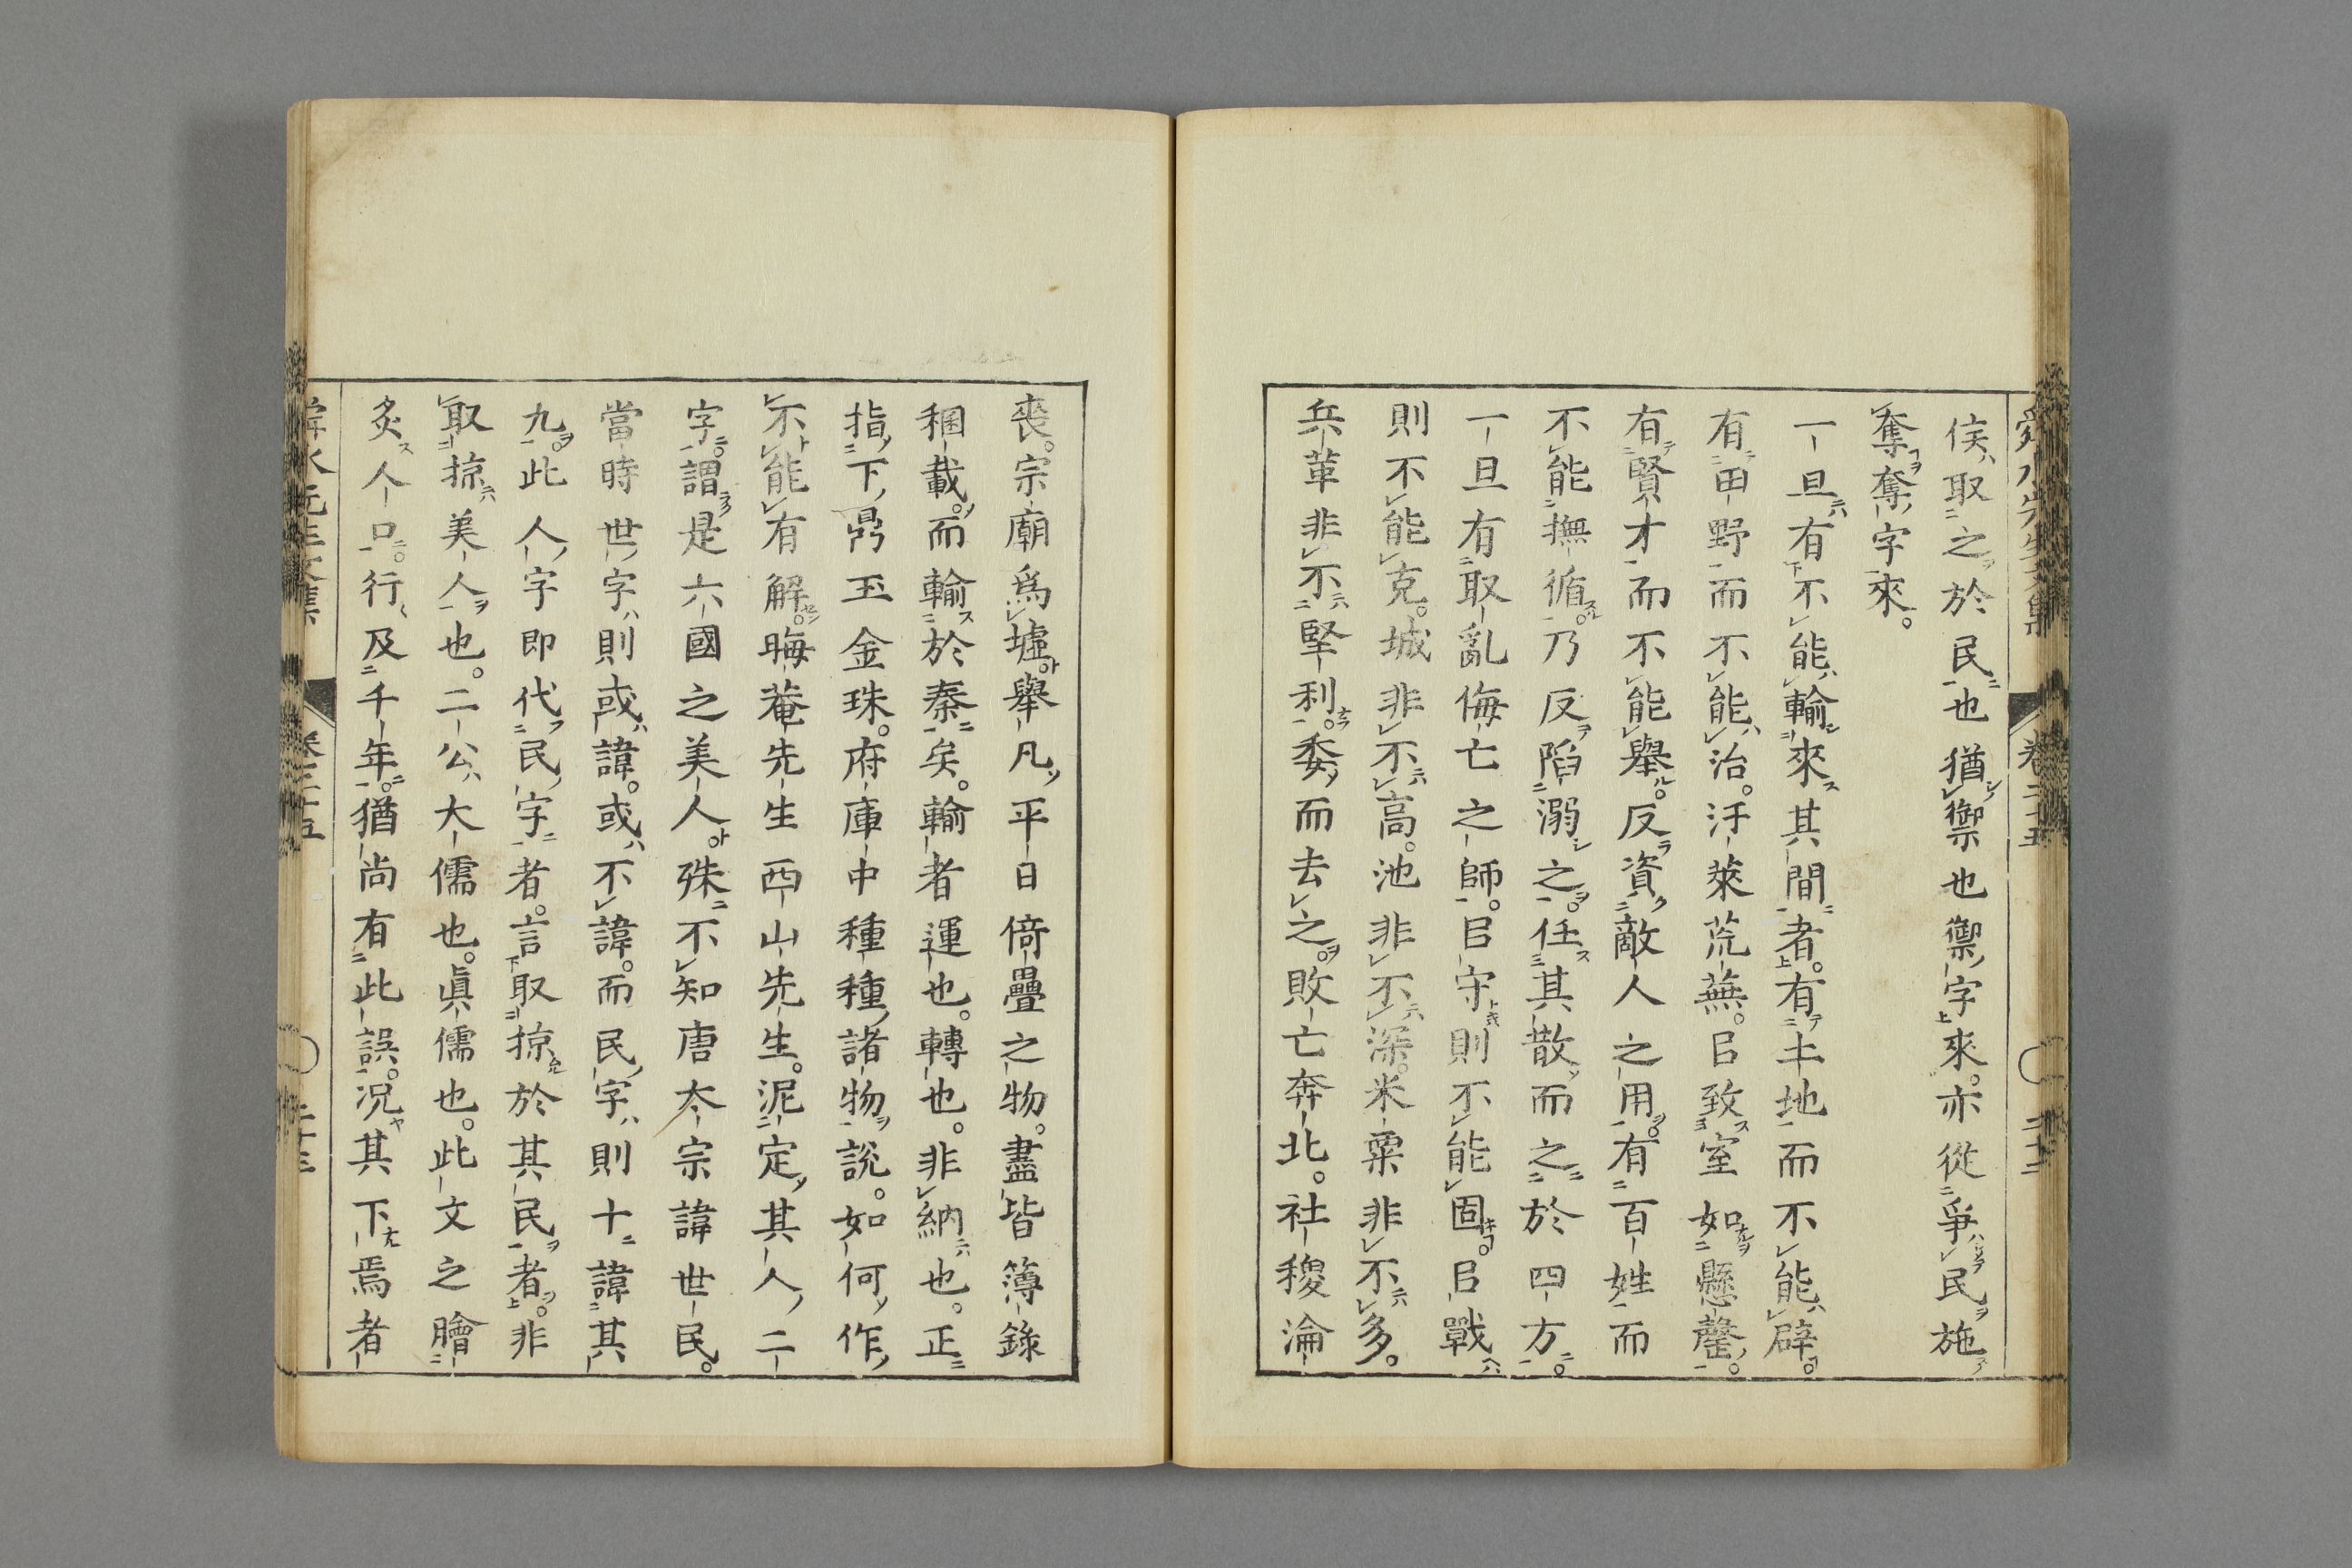 侯取之於民也猶禦也禦字來亦從爭民施
奪奪字來
一旦有不能輸來其間者有土地而不能辟
有田野而不能治汙萊荒蕪㠯致室如懸罄
有賢才而不能舉反資敵人之用有百姓而
不能撫循乃反陷溺之任其散而之於四方
一旦有取亂侮亡之師㠯守則不能固㠯戰
則不能克城非不高池非不深米粟非不多
兵革非不堅利委而去之敗亡奔北社稷淪
喪宗廟爲墟舉凡平日倚疊之物盡皆簿錄
稇載而輸於秦矣輸者運也轉也非納也正
指下鼎玉金珠府庫中種種諸物說如何作
不能有解晦菴先生西山先生泥定其人二
字謂是六國之美人殊不知唐太宗諱世民
當時世字則或諱或不諱而民字則十諱其
九此人字即代民字者言取掠於其民者非
取掠美人也二公大儒也眞儒也此文之膾
炙人口行及千年猶尚有此誤況其下焉者